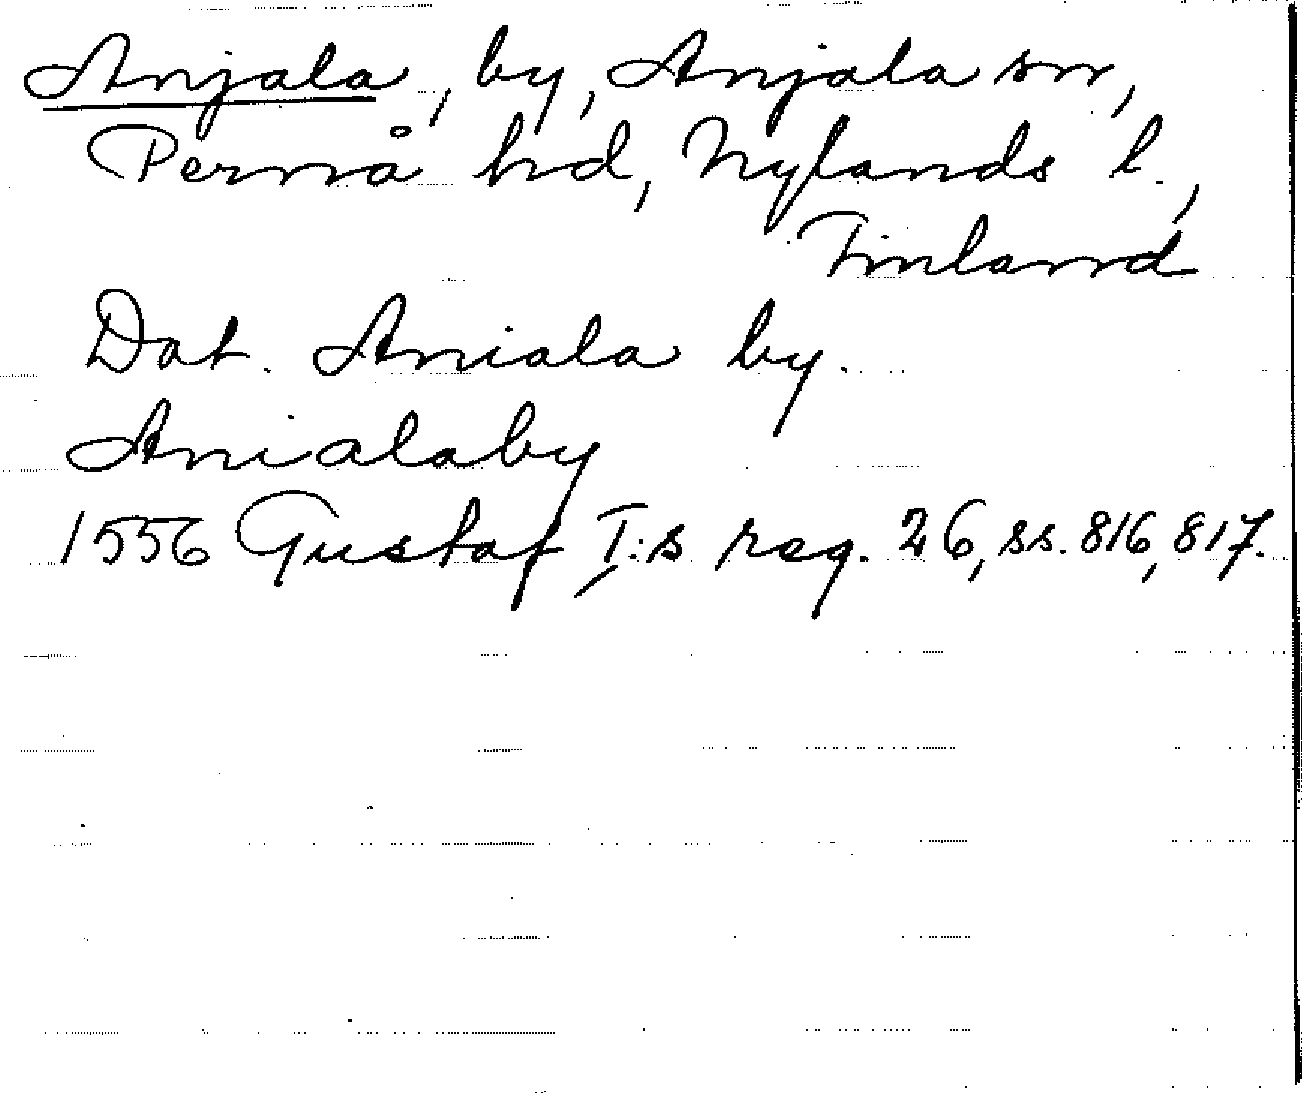 Anjala, by, Anjala sn,
Pernå hd, Nylands l.,
Finland
Dat. Aniala by.
Anialaby
1556 Gustaf I:s reg. 26, ss. 816, 817.